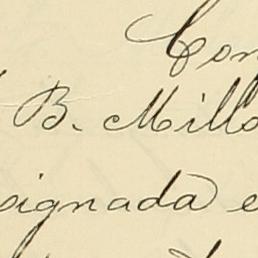 Con
B. Millo
signada e